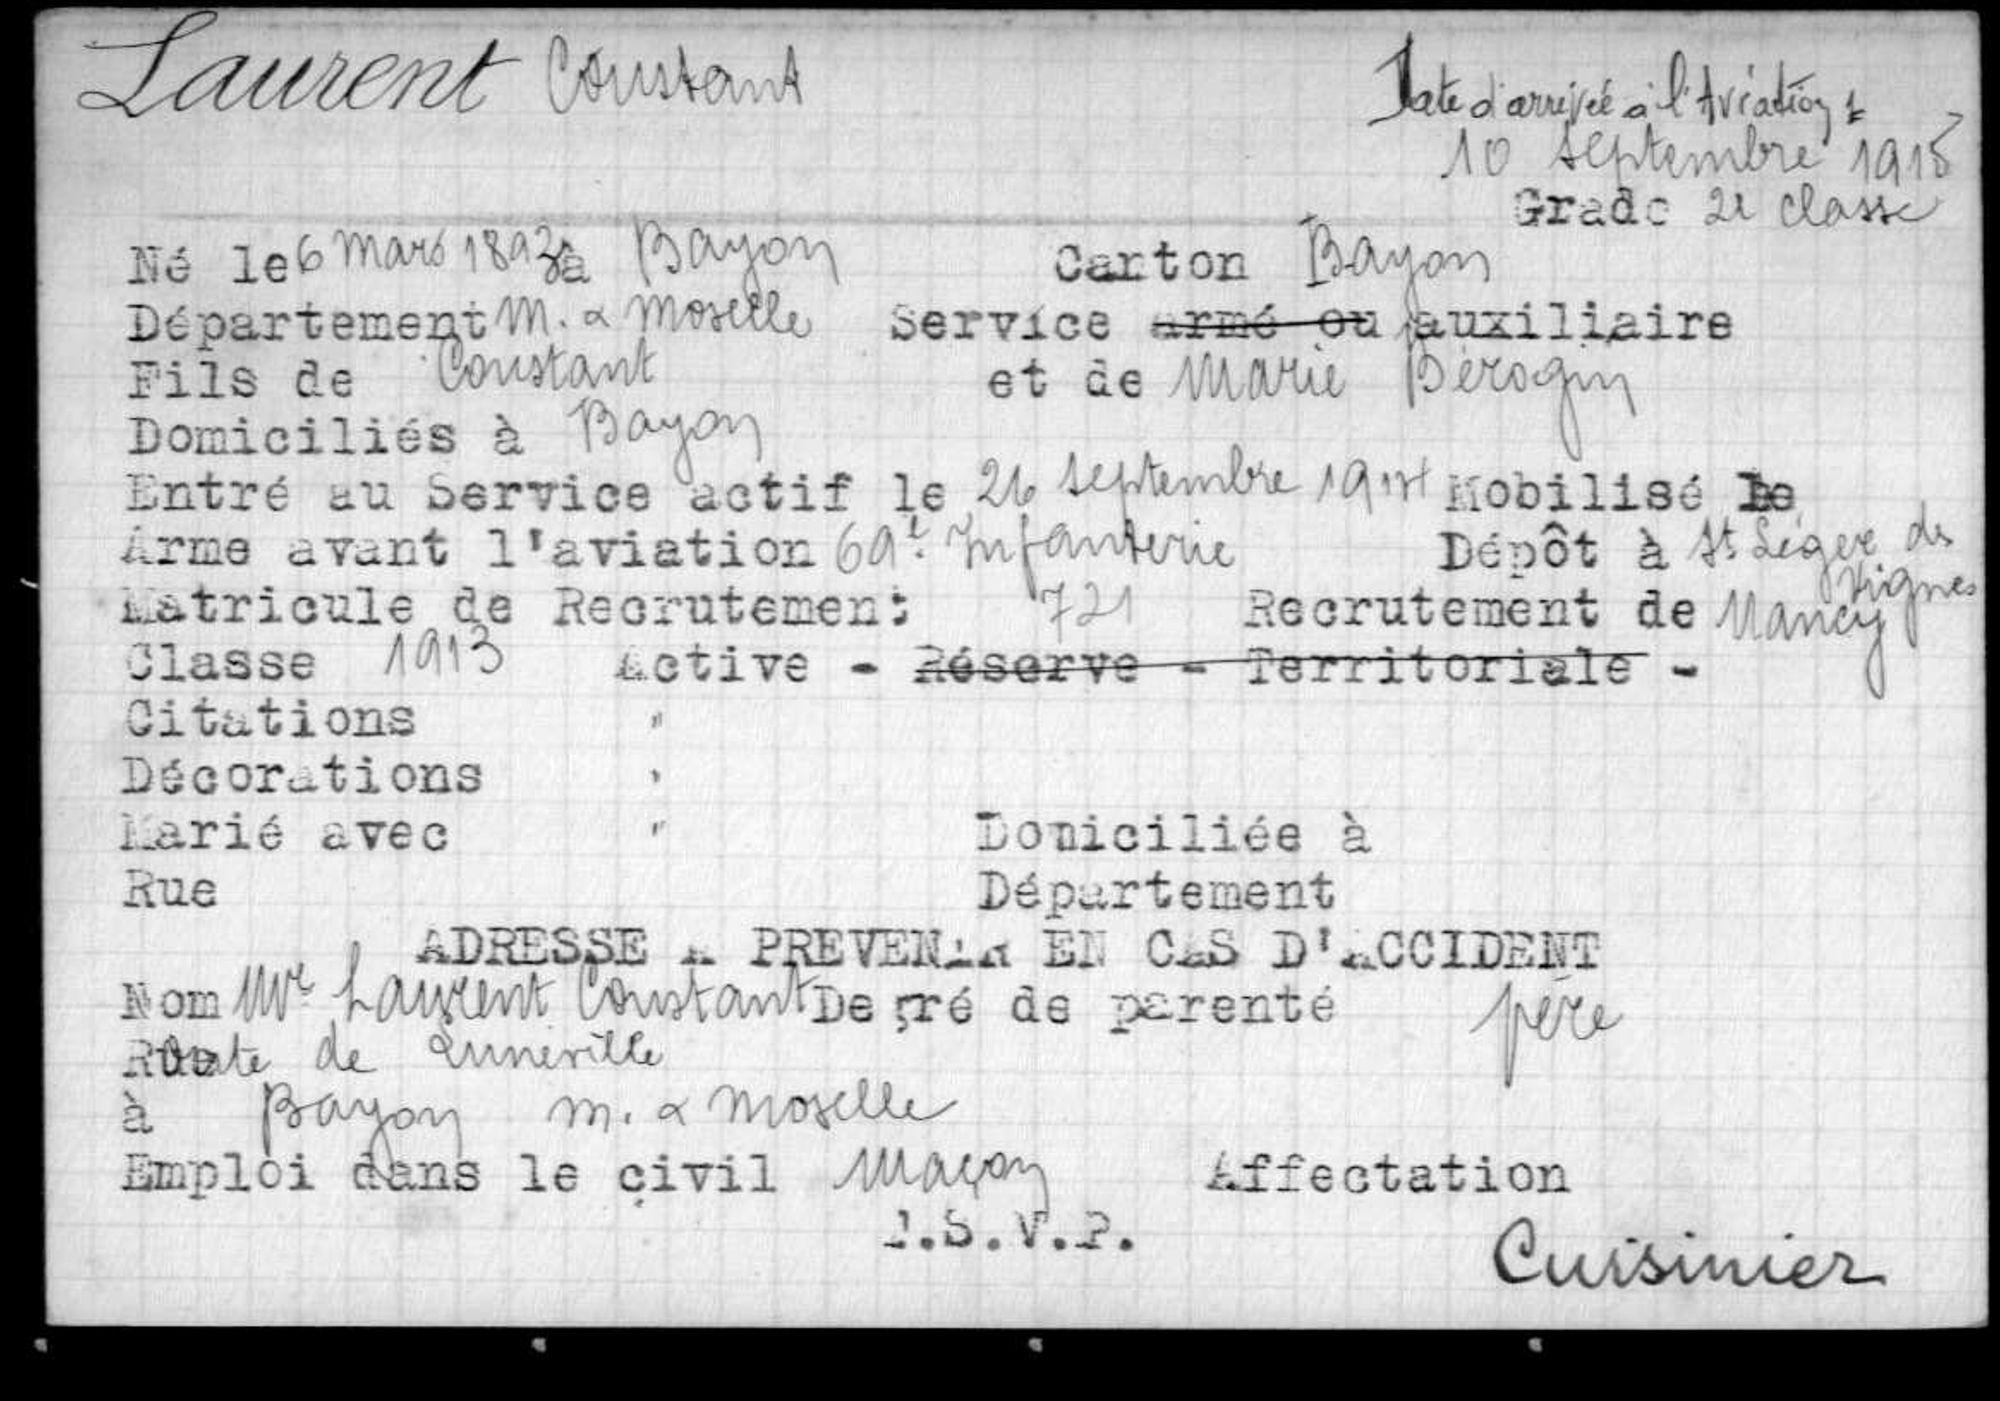 Laurent Constant
Date d'arrivée à l'Aviation :
10 septembre 1915
Grade 2e classe
Né le 6 mars 1893 à Bayon Canton Bayon
Département M. & Moselle Service armé ou auxiliaire
Fils de Constant et de Marie Bérogin
Domiciliés à Bayon
Entré au Service actif le 26 septembre 1914 Mobilisé le
Arme avant l'aviation 69e Infanterie Dépôt à St Léger des Vignes
Matricule de Recrutement 721 Recrutement de Nancy
Classe 1913 Active - Réserve - Territoriale -
Citations "
Décorations "
Marié avec " Domiciliée à
Rue Département
ADRESSE A PREVENIR EN CAS D'ACCIDENT
Nom Mr Laurent Constant Degré de parenté père
Route de Lunéville
à Bayon M. & Moselle
Emploi dans le civil Maçon Affectation
T.S.V.P.
Cuisinier